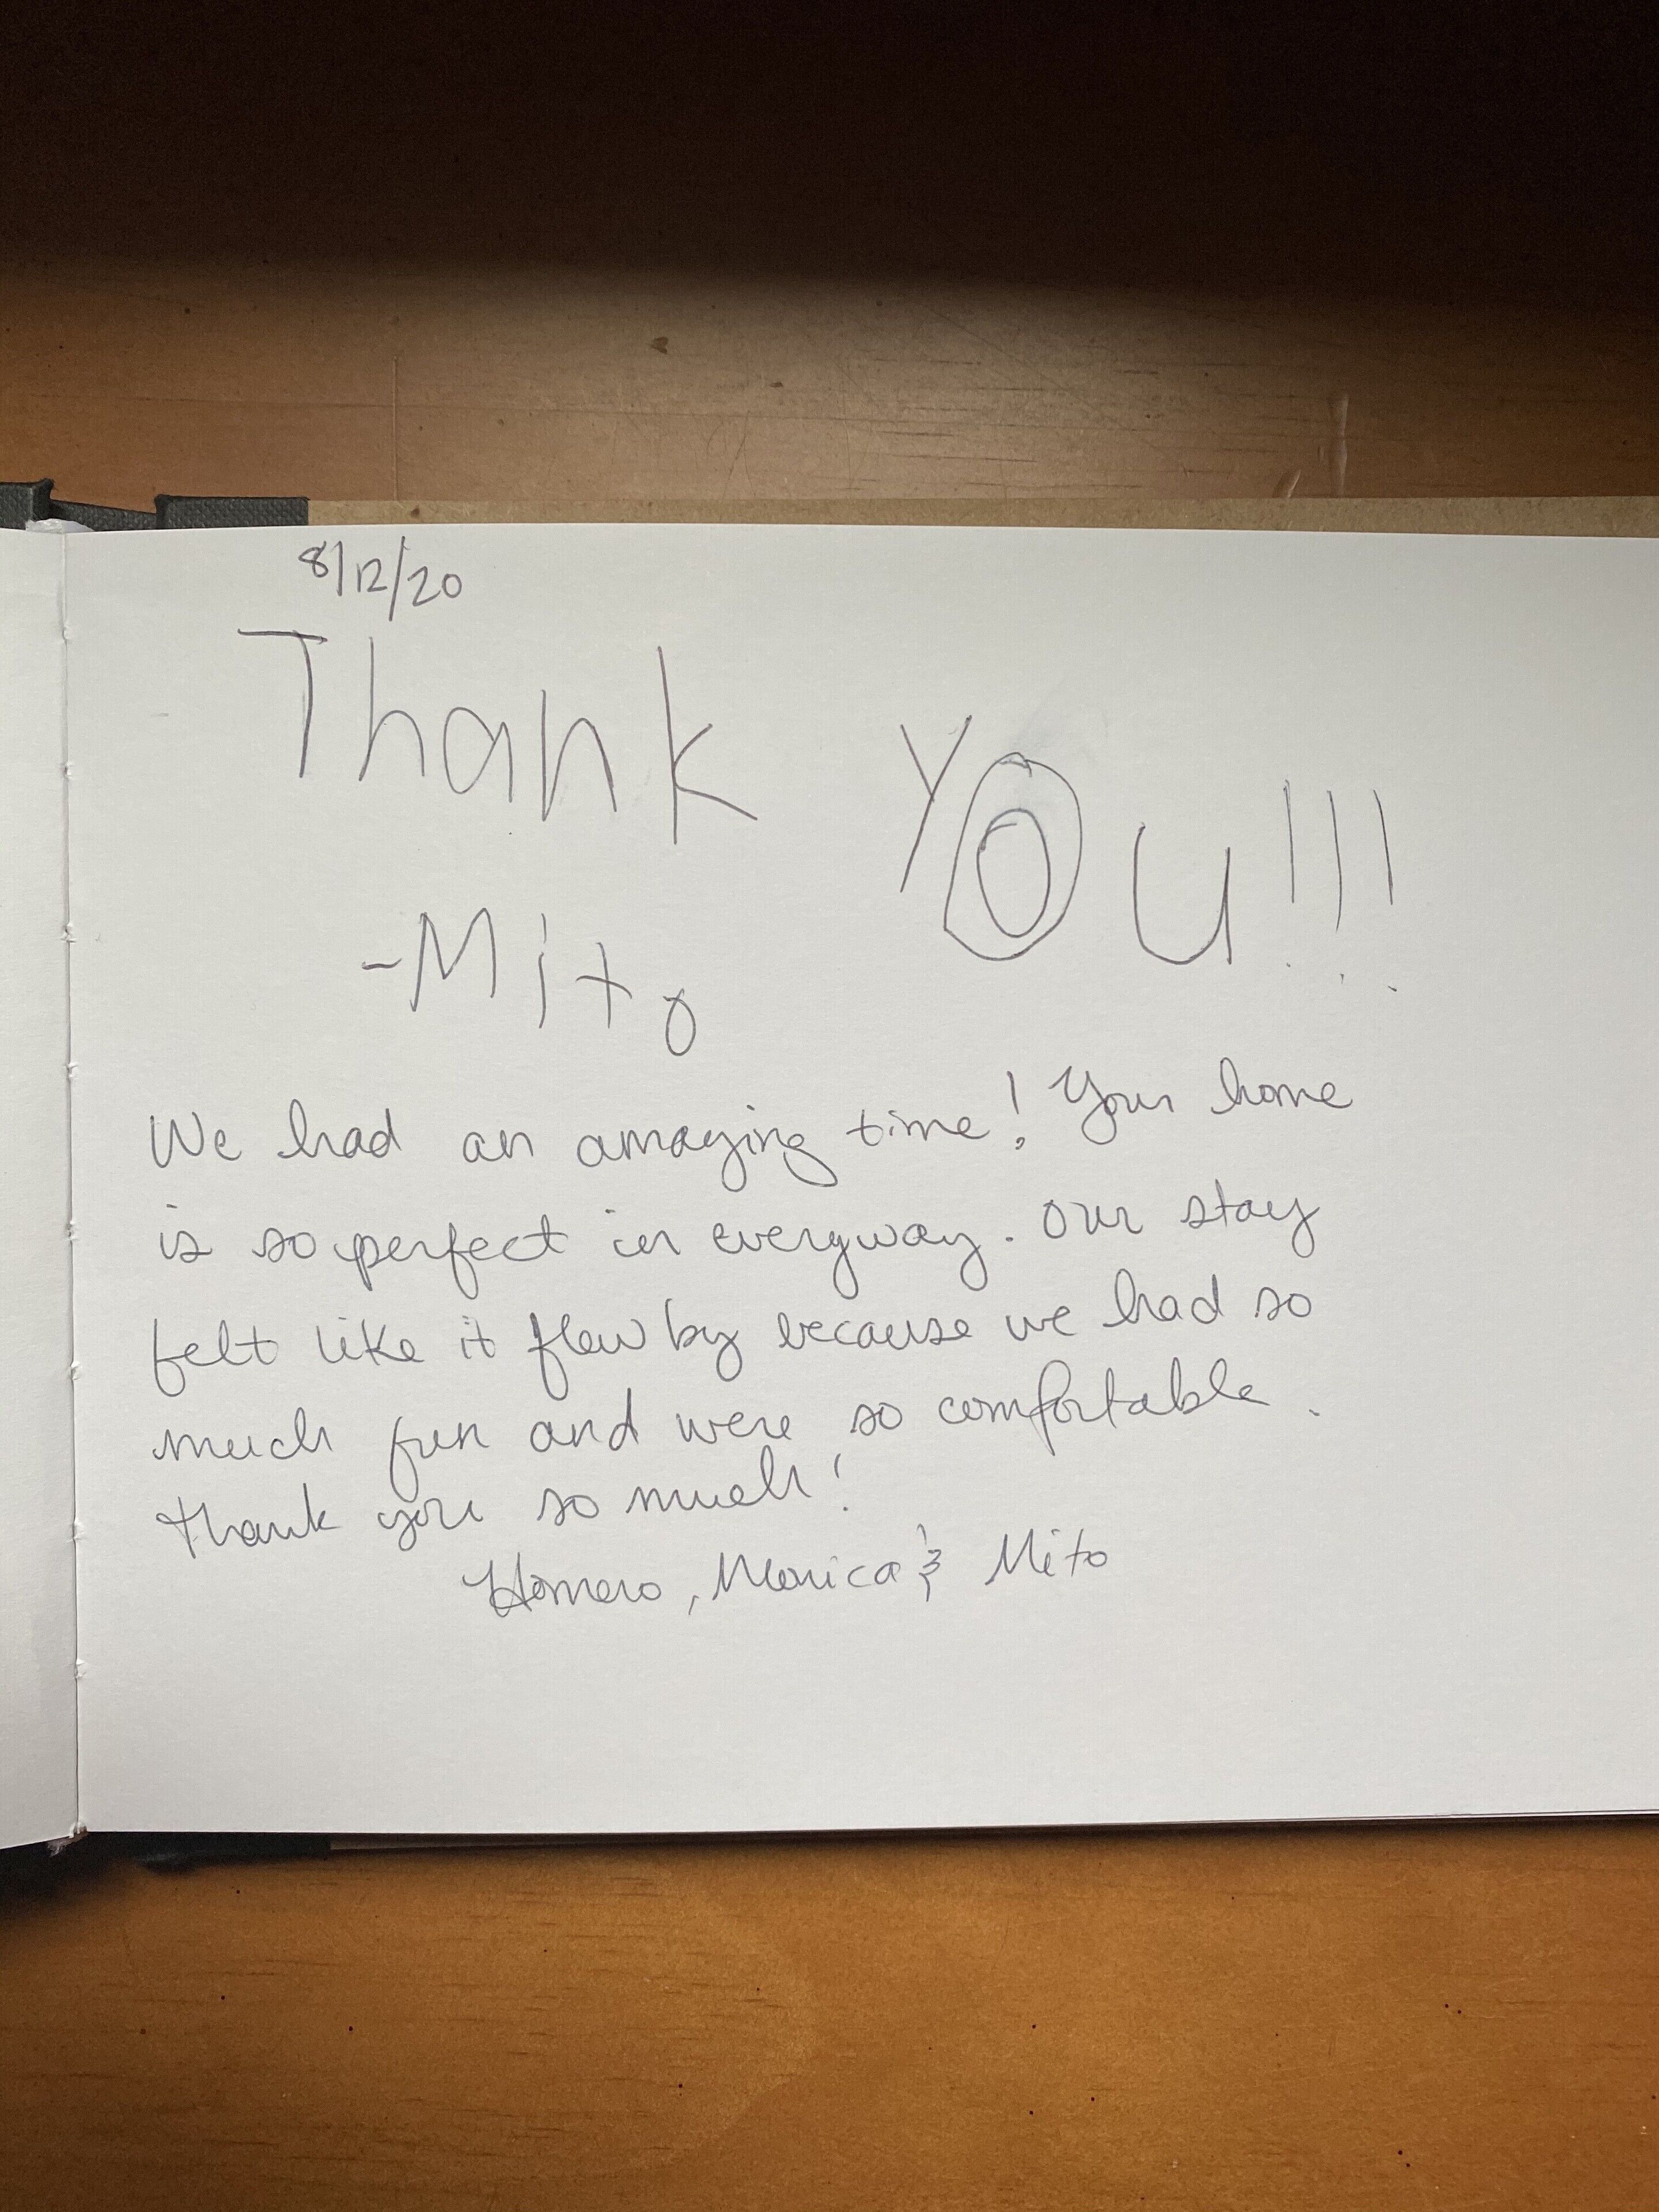 8/12/20
Thank YOu!!!
-Mito
We had an amazing time! Your home
is so perfect in everyway. Our stay
felt like it flew by because we had so
much fun and were so comfortable.
Thank you so much!
Homero, Monica & Mito